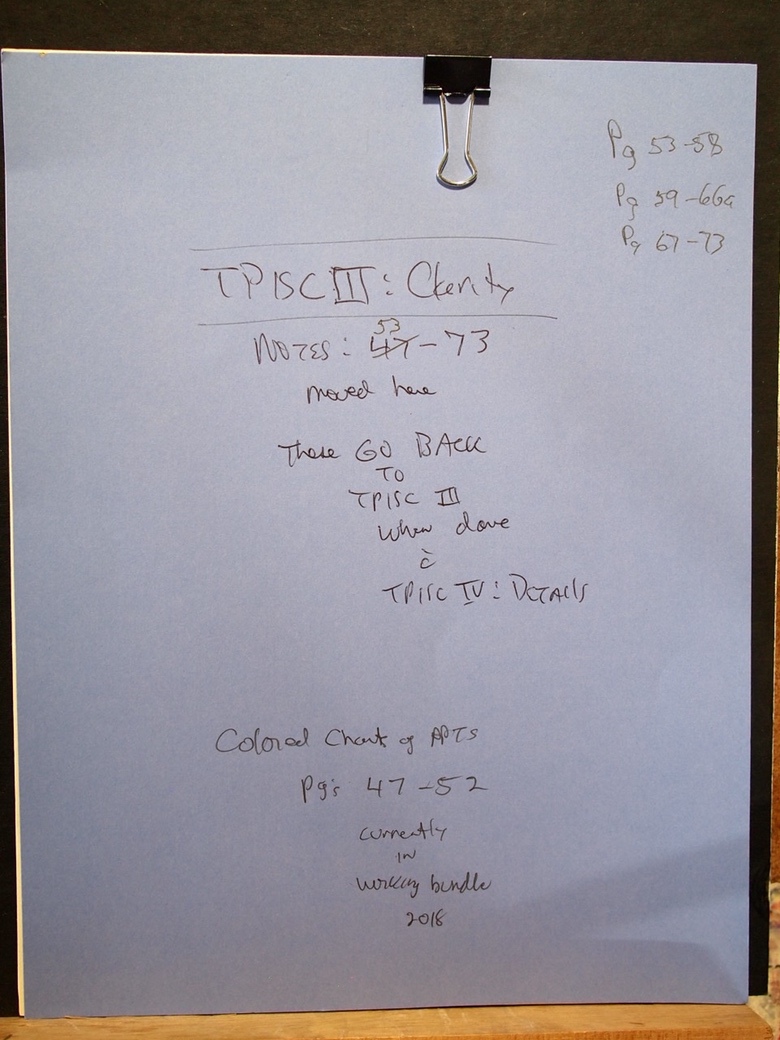 Pg 53-58
Pg 59-66a
Pg 67-73
TPISC III: Clarity
53
NOTES: 47-73
moved here
These GO BACK
TO
TPISC III
when done
c̄
TPISC IV: DETAILS
Colored Chart of PPTS
Pg's 47-52
currently
in
working bundle
2018